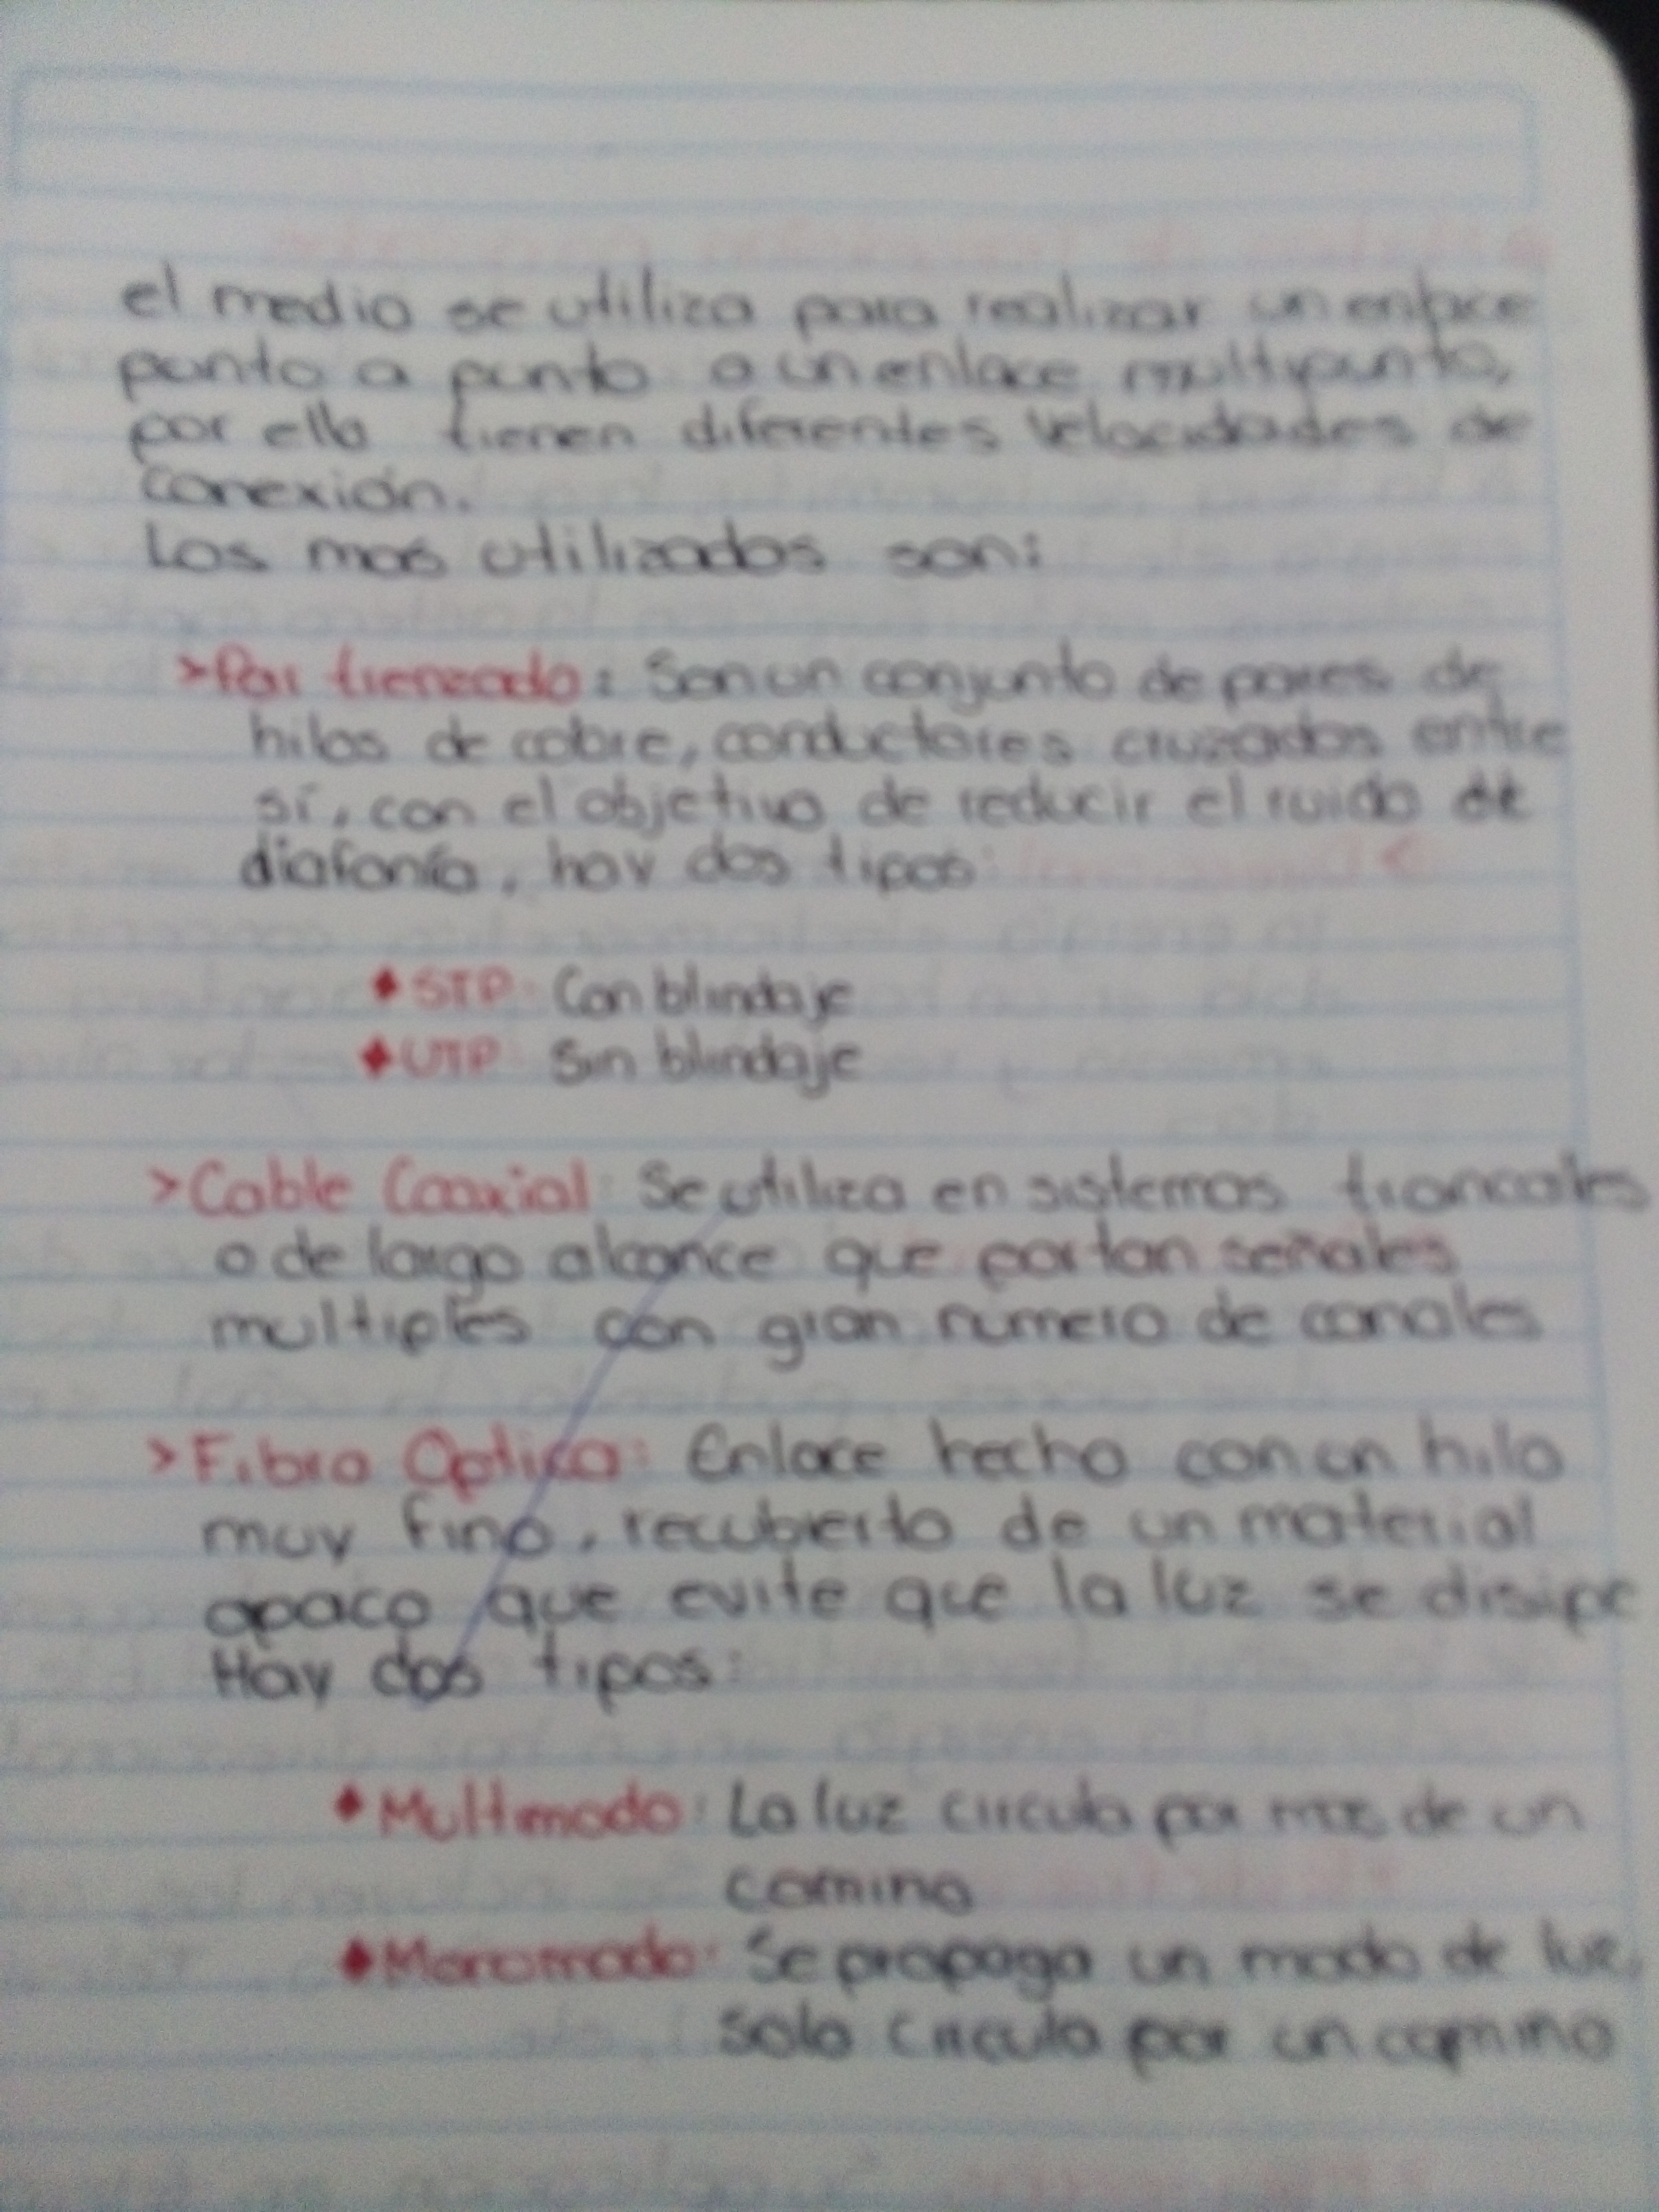 el medio se utiliza para realizar un enlace
punto a punto o un enlace multipunto,
por ello tienen diferentes velocidades de
conexión.
Los mas utilizados son:
>Par trenzado: Son un conjunto de pares de
hilos de cobre, conductores cruzados entre
sí, con el objetivo de reducir el ruido de
diafonía, hay dos tipos:
♦STP: Con blindaje
♦UTP: Sin blindaje
>Cable Coaxial: Se utiliza en sistemas troncales
o de largo alcance que portan señales
multiples con gran numero de canales
>Fibra Optica: Enlace hecho con un hilo
muy fino, recubierto de un material
opaco que evite que la luz se disipe
Hay dos tipos:
♦Multimodo: La luz circula por mas de un
camino
♦Monomodo: Se propaga un modo de luz,
solo circula por un camino